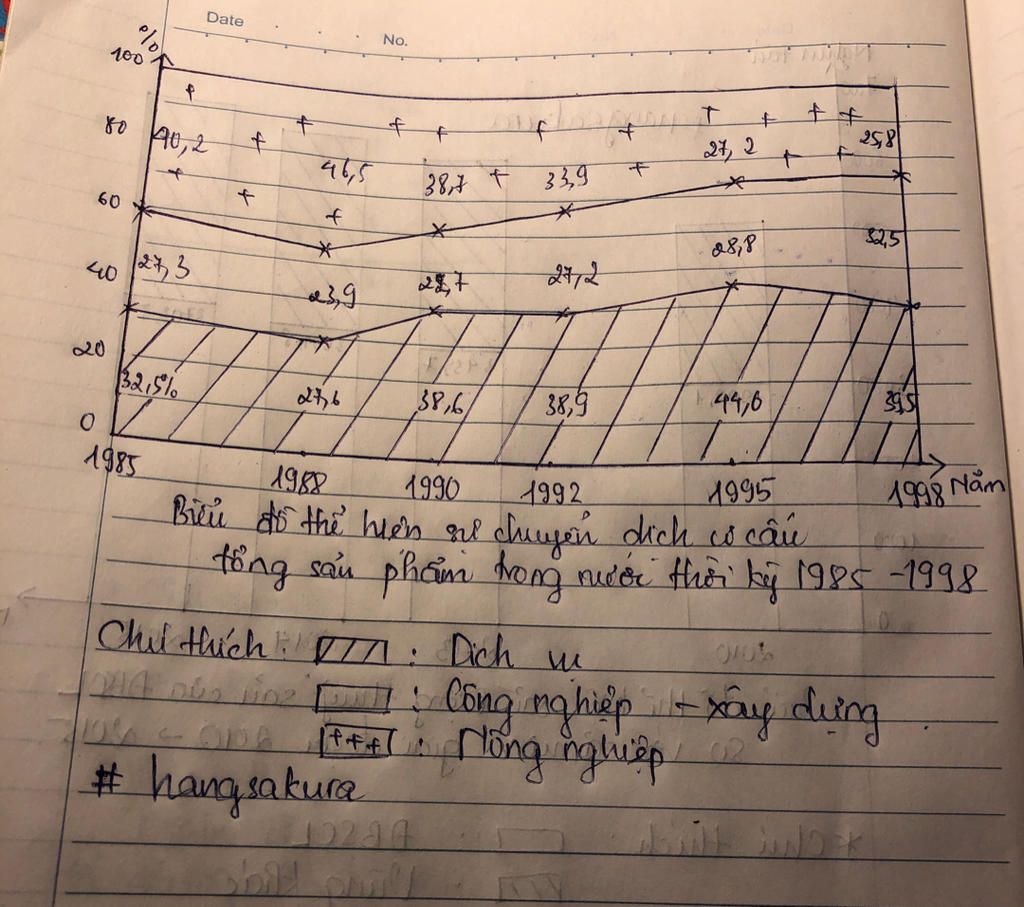 Date
No.
%
100
80
60
40
20
0
40,2
46,5
38,7
33,9
27,2
25,8
27,3
23,9
22,7
27,2
28,8
32,5
32,5%
27,6
38,6
38,9
44,0
39,5
1985
1988
1990
1992
1995
1998
Năm
Biểu đồ thể hiện sự chuyển dịch cơ cấu
tổng sản phẩm trong nước thời kỳ 1985 - 1998
Chú thích: : Dịch vụ
: Công nghiệp - xây dựng
+++ : Nông nghiệp
# hangsakura